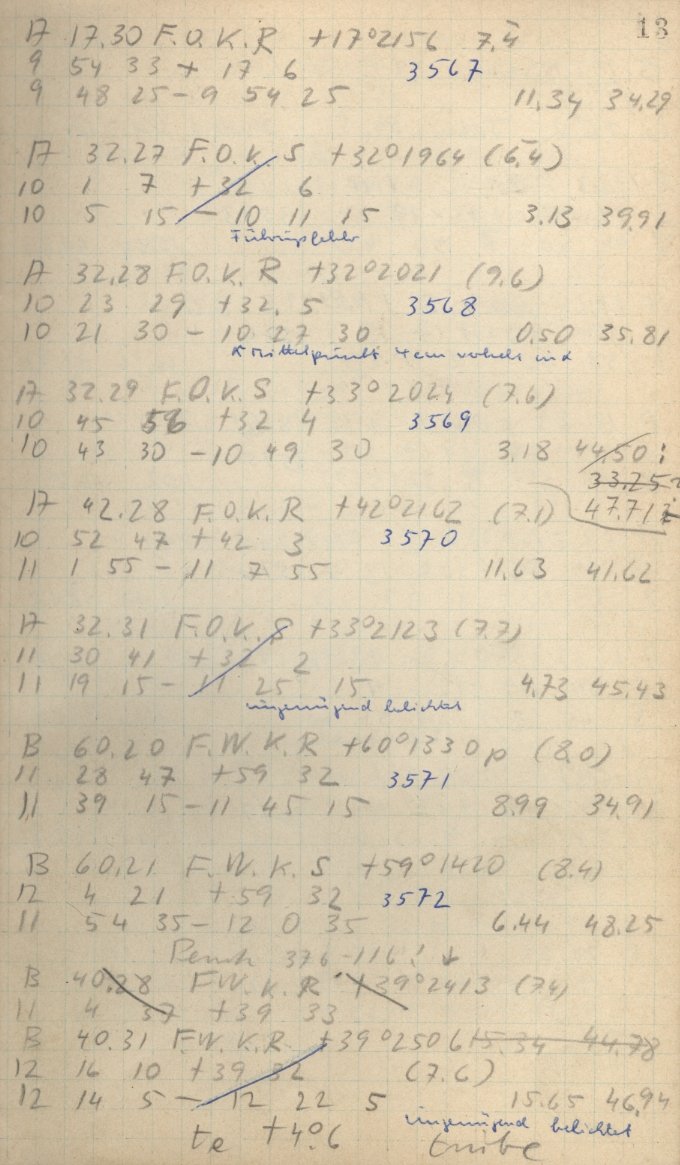 13
A 17.30 F.O.K.R +17°2156 7.4
9 54 33 + 17 6 3567
9 48 25 - 9 54 25 11.34 34.29
A 32.27 F.O.K.S +32°1964 (6.4)
10 1 7 +32 6
10 5 15 - 10 11 15 3.13 39.91
Führungsfehler
A 32.28 F.O.K.R +32°2021 (9.6)
10 23 29 +32. 5 3568
10 21 30 - 10 27 30 0.50 35.81
Mittelpunkt 4cm
A 32.29 F.O.K.S +33°2024 (7.6)
10 45 56 +32 4 3569
10 43 30 - 10 49 30 3.18 44.50 :
33.25
A 42.28 F.O.K.R +42°2162 (7.1) 47.71
10 52 47 +42 3 3570
11 1 55 - 11 7 55 11.63 41.62
A 32.31 F.O.K.S +33°2123 (7.7)
11 30 41 +32 2
11 19 15 - 11 25 15 4.73 45.43
ungenügend belichtet
B 60.20 F.W.K.R +60°1330p (8.0)
11 28 47 +59 32 3571
11 39 15 - 11 45 15 8.99 34.91
B 60.21 F.W.K.S +59°1420 (8.4)
12 4 21 +59 32 3572
11 54 35 - 12 0 35 6.44 48.25
376-116! ↓
B 40.28 F.W.K.R +39°2413 (7.4)
11 4 37 +39 33
B 40.31 F.W.K.R +39°2506 15.34 44.78
12 16 10 +39 32 (7.6)
12 14 5 - 12 22 5 15.65 46.94
ungenügend belichtet
te +4°.6 trübe